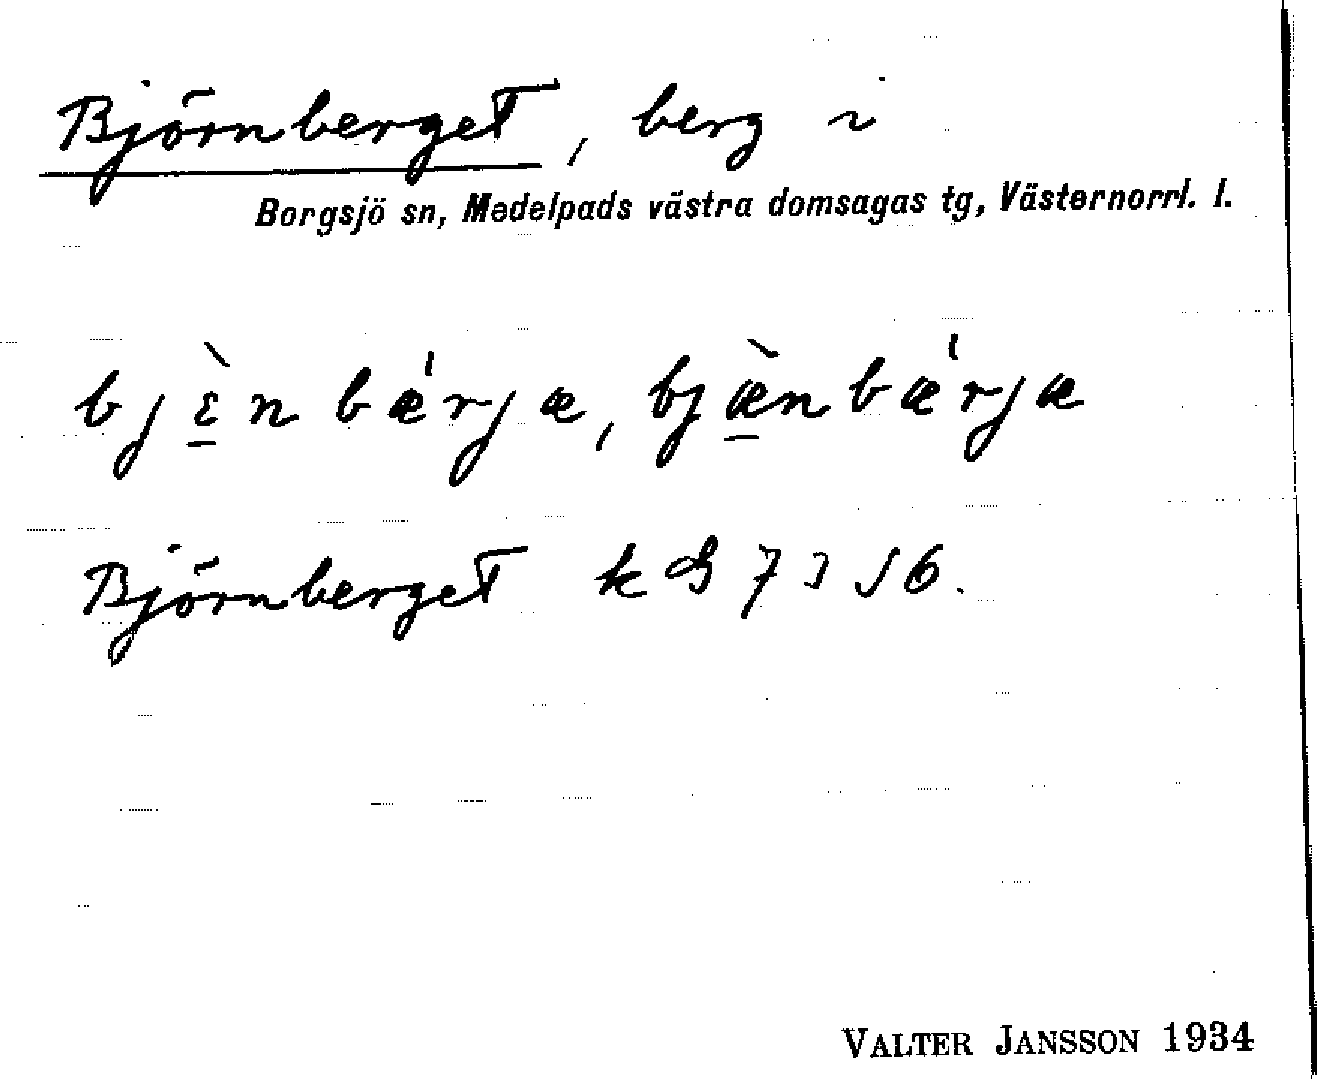 Björnberget, berg i
Borgsjö sn, Medelpads västra domsagas tg, Västernorrl. l.
bjɛ̠̀n bǽrjæ, bjæ̠̀nbǽrjæ
Björnberget
VALTER JANSSON 1934